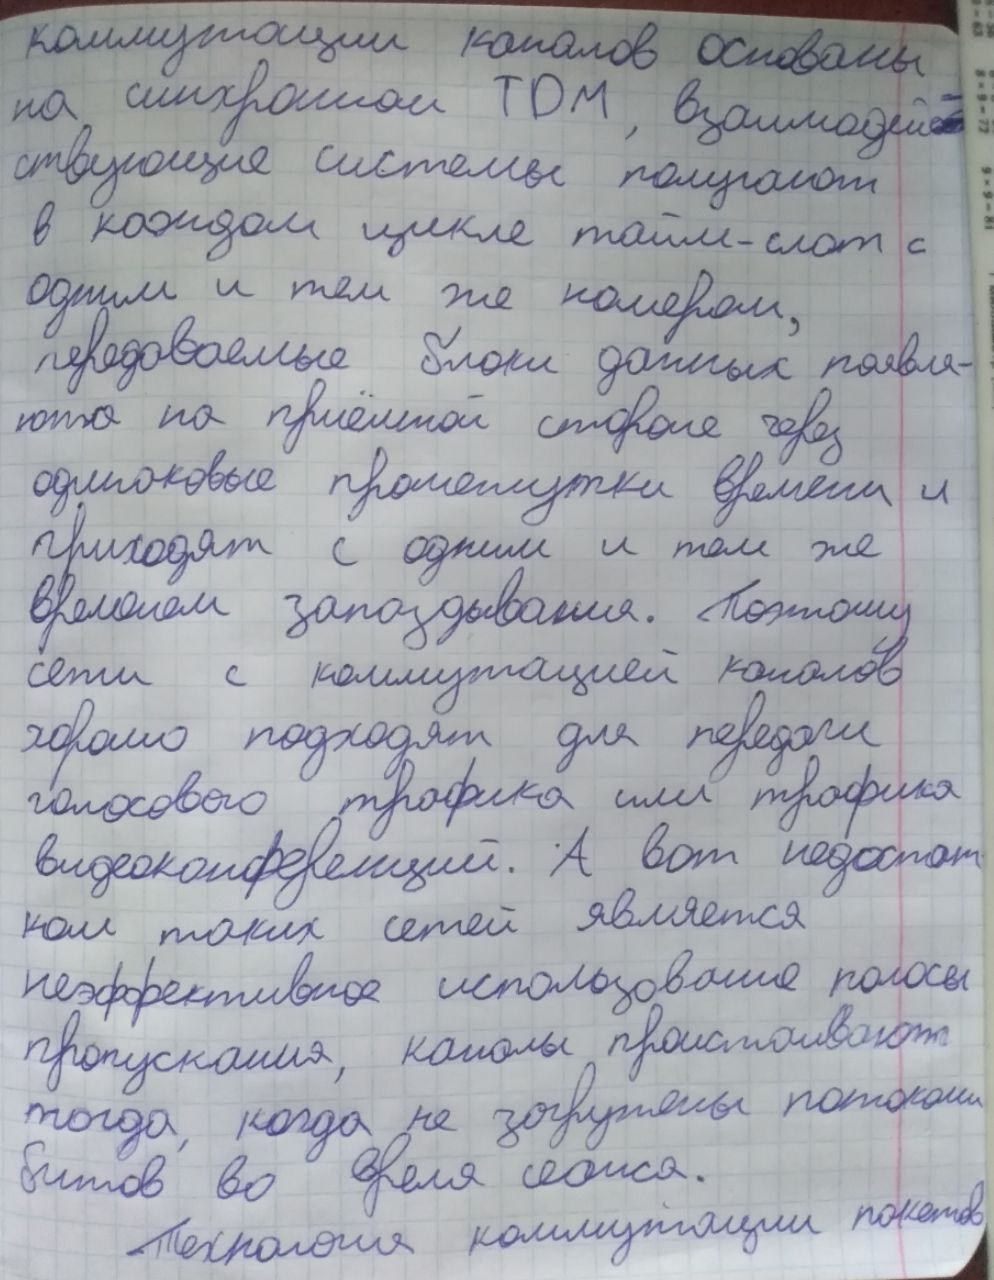 коммутации каналов основаны
на синхронном TDM, взаимодей-
ствующие системы получают
в каждом цикле тайм-слот с
одним и тем же номером,
передаваемые блоки данных появля-
ются на приёмной стороне через
одинаковые промежутки времени и
приходят с одним и тем же
временем запаздывания. Поэтому
сети с коммутацией каналов
хорошо подходят для передачи
голосового трафика или трафика
видеоконференций. А вот недостат-
ком таких сетей является
неэффективное использование полосы
пропускания, каналы простаивают
тогда, когда не загружены потоками
битов во время сеанса.
Технология коммутации пакетов